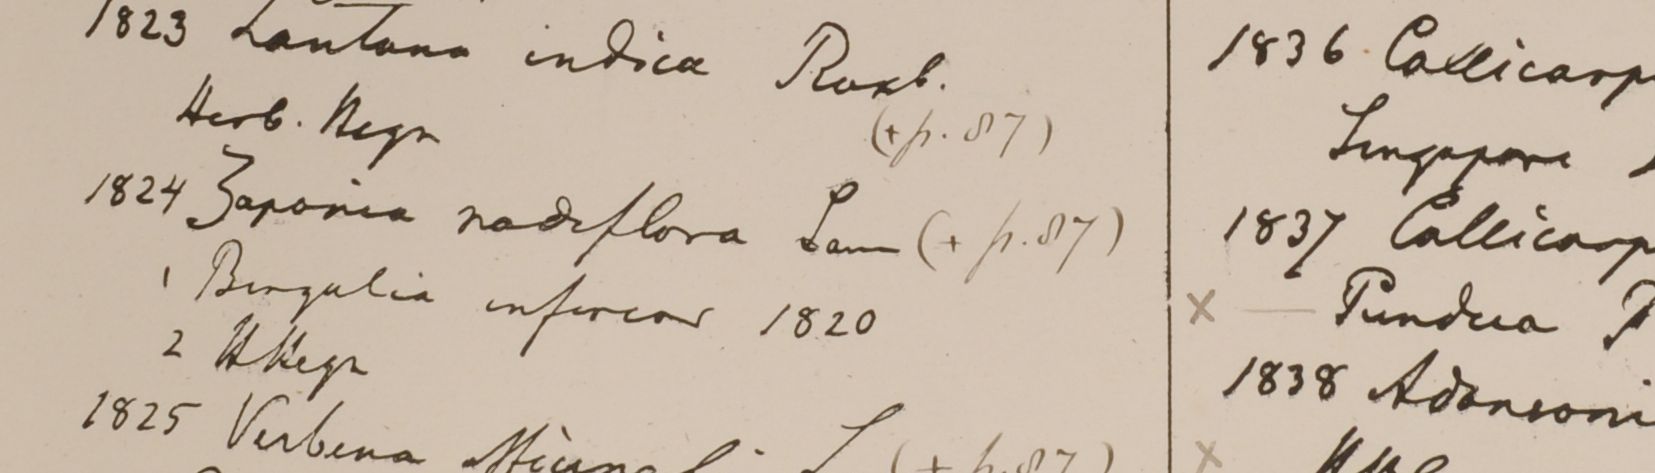 1823 Lantana indica Roxb.
Herb. Hegn
(+ p. 87)
1824 Zapania nodiflora Lam (+ p. 87)
1 Bengalia inferior 1820
2 H Hegn
1825 Verbena L (+ p. 87)
1836 Callicarp
Singapore
1837 Callicarp
x — Pundua
1838 Adansoni
x